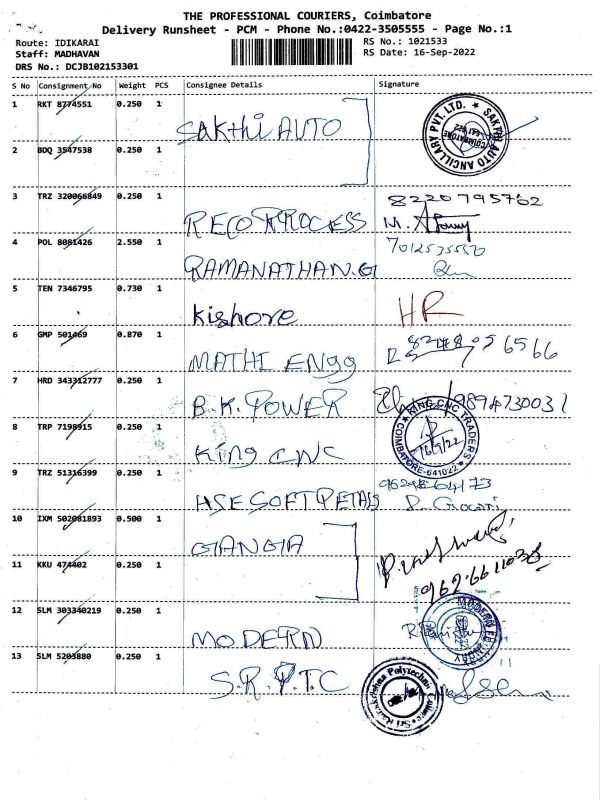 THE PROFESSIONAL COURIERS, Coimbatore
Delivery Runsheet - PCM - Phone No.:0422-3505555 - Page No.:1
Route: IDIKARAI
Staff: MADHAVAN
DRS No.: DCJB102153301
RS No.: 1021533
RS Date: 16-Sep-2022
S No Consignment No Weight PCS Consignee Details Signature
1 RKT 8774551 0.250 1
SAKthi AUTO
SAKTHI AUTO ANCILLARY PVT. LTD.
2 BDQ 3547538 0.250 1
3 TRZ 320066849 0.250 1
RECO PROCESS 8220795762
M.
4 POL 8081426 2.550 1
RAMANATHAN.G
5 TEN 7346795 0.730 1
Kishore HR
6 GMP 501469 0.870 1
MATHI ENgg
7 HRD 343312777 0.250 1
B.K. POWER 9894730031
8 TRP 7198915 0.250 1
King CNC
KING CNC TRADERS
COIMBATORE-641022
16/9/22
9 TRZ 51316399 0.250 1
HSE SOFT PETALS
10 IXM 502081893 0.500 1
GANGA
11 KKU 474402 0.250 1
12 SLM 303340219 0.250 1
MODERN
13 SLM 5203880 0.250 1
S.R.P.T.C